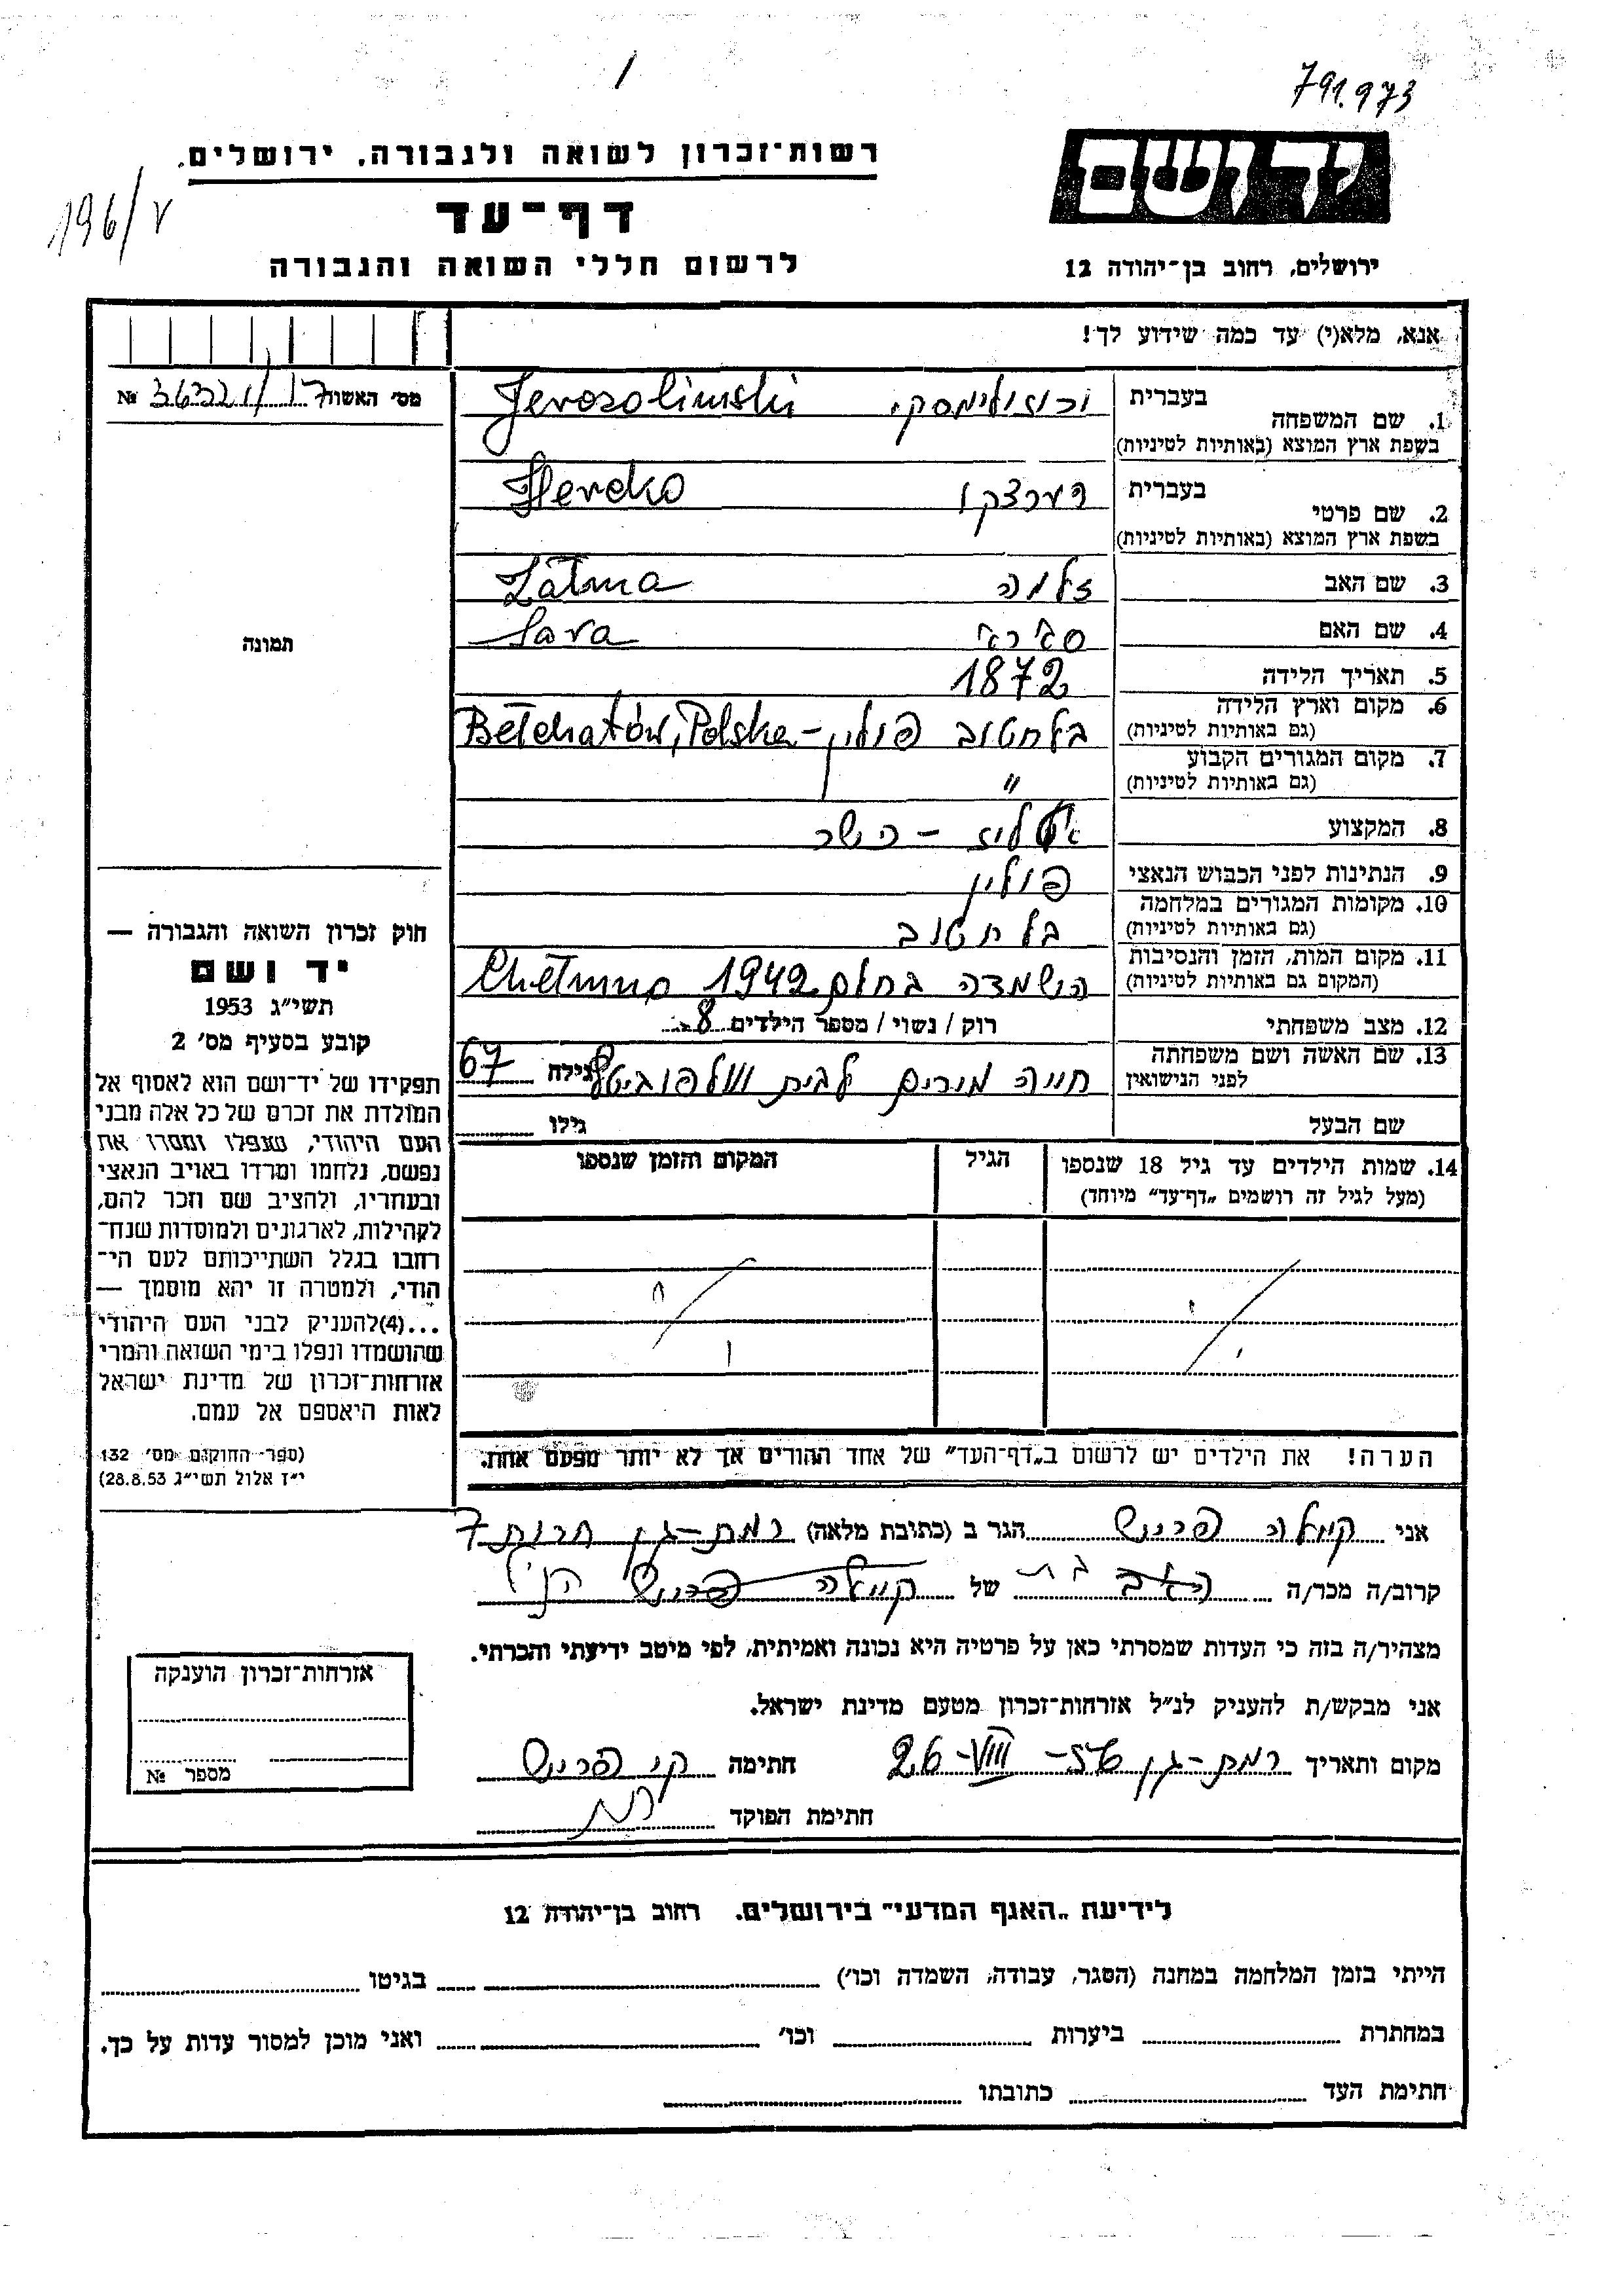 791.973
196/ע
יד ושם
ירושלים, רחוב בן־יהודה 12
רשות־זכרון לשואה ולגבורה, ירושלים.
דף־עד
לרשום חללי השואה והגבורה
אנא, מלא(י) עד כמה שידוע לך!
מס' האשות 17 / 36321 №
תמונה
1. שם המשפחה
בעברית
בשפת ארץ המוצא (באותיות לטיניות)
ירוזולימסקי Jerozolimski
2. שם פרטי
בעברית
בשפת ארץ המוצא (באותיות לטיניות)
הערצקו Hercko
3. שם האב זלמה Zalma
4. שם האם סארא Sara
5. תאריך הלידה 1872
6. מקום וארץ הלידה
(גם באותיות לטיניות)
בלחטוב פולין – Bełchatów, Polska
7. מקום המגורים הקבוע "
(גם באותיות לטיניות)
8. המקצוע איטליז – בשר
9. הנתינות לפני הכבוש הנאצי פולין
10. מקומות המגורים במלחמה בלחטוב
(גם באותיות לטיניות)
11. מקום המות, הזמן והנסיבות
(המקום גם באותיות לטיניות)
השמדה בחלם 1942 Chełmno
12. מצב משפחתי רוק / נשוי / מספר הילדים 8
13. שם האשה ושם משפחתה
לפני הנישואין
חייה מירים לבית גילה 67
שם הבעל גילו
14. שמות הילדים עד גיל 18 שנספו
(מעל לגיל זה רושמים „דף־עד" מיוחד)
הגיל
המקום והזמן שנספו
הערה! את הילדים יש לרשום ב„דף־העד" של אחד ההורים אך לא יותר מפעם אחת.
חוק זכרון השואה והגבורה —
יד ושם
תשי"ג 1953
קובע בסעיף מס' 2
תפקידו של יד־ושם הוא לאסוף אל
המולדת את זכרם של כל אלה מבני
העם היהודי, שנפלו ומסרו את
נפשם, נלחמו ומרדו באויב הנאצי
ובעוזריו, ולהציב שם וזכר להם,
לקהילות, לארגונים ולמוסדות שנח־
רחבו בגלל השתייכותם לעם הי־
הודי, ולמטרה זו יהא מוסמך —
...(4)להעניק לבני העם היהודי
שהושמדו ונפלו בימי השואה והמרי
אזרחות־זכרון של מדינת ישראל
לאות היאספם אל עמם.
(ספר־ החוקים מס' 132
י"ז אלול תשי"ג 28.8.53)
אני קיילה הגר ב (כתובת מלאה) רמת־גן חרות 7
קרוב/ה מכר/ה האב בת של קיילה הנ"ל
מצהיר/ה בזה כי העדות שמסרתי כאן על פרטיה היא נכונה ואמיתית, לפי מיטב ידיעתי והכרתי.
אני מבקש/ת להעניק לנ"ל אזרחות־זכרון מטעם מדינת ישראל.
מקום ותאריך רמת־גן 26-VIII-56 חתימה
חתימת הפוקד
אזרחות־זכרון הוענקה
מספר №
לידיעת „האגף המדעי" בירושלים. רחוב בן־יהודה 12
הייתי בזמן המלחמה במחנה (הסגר, עבודה, השמדה וכו') בגיטו
במחתרת ביערות וכו' ואני מוכן למסור עדות על כך.
חתימת העד כתובתו